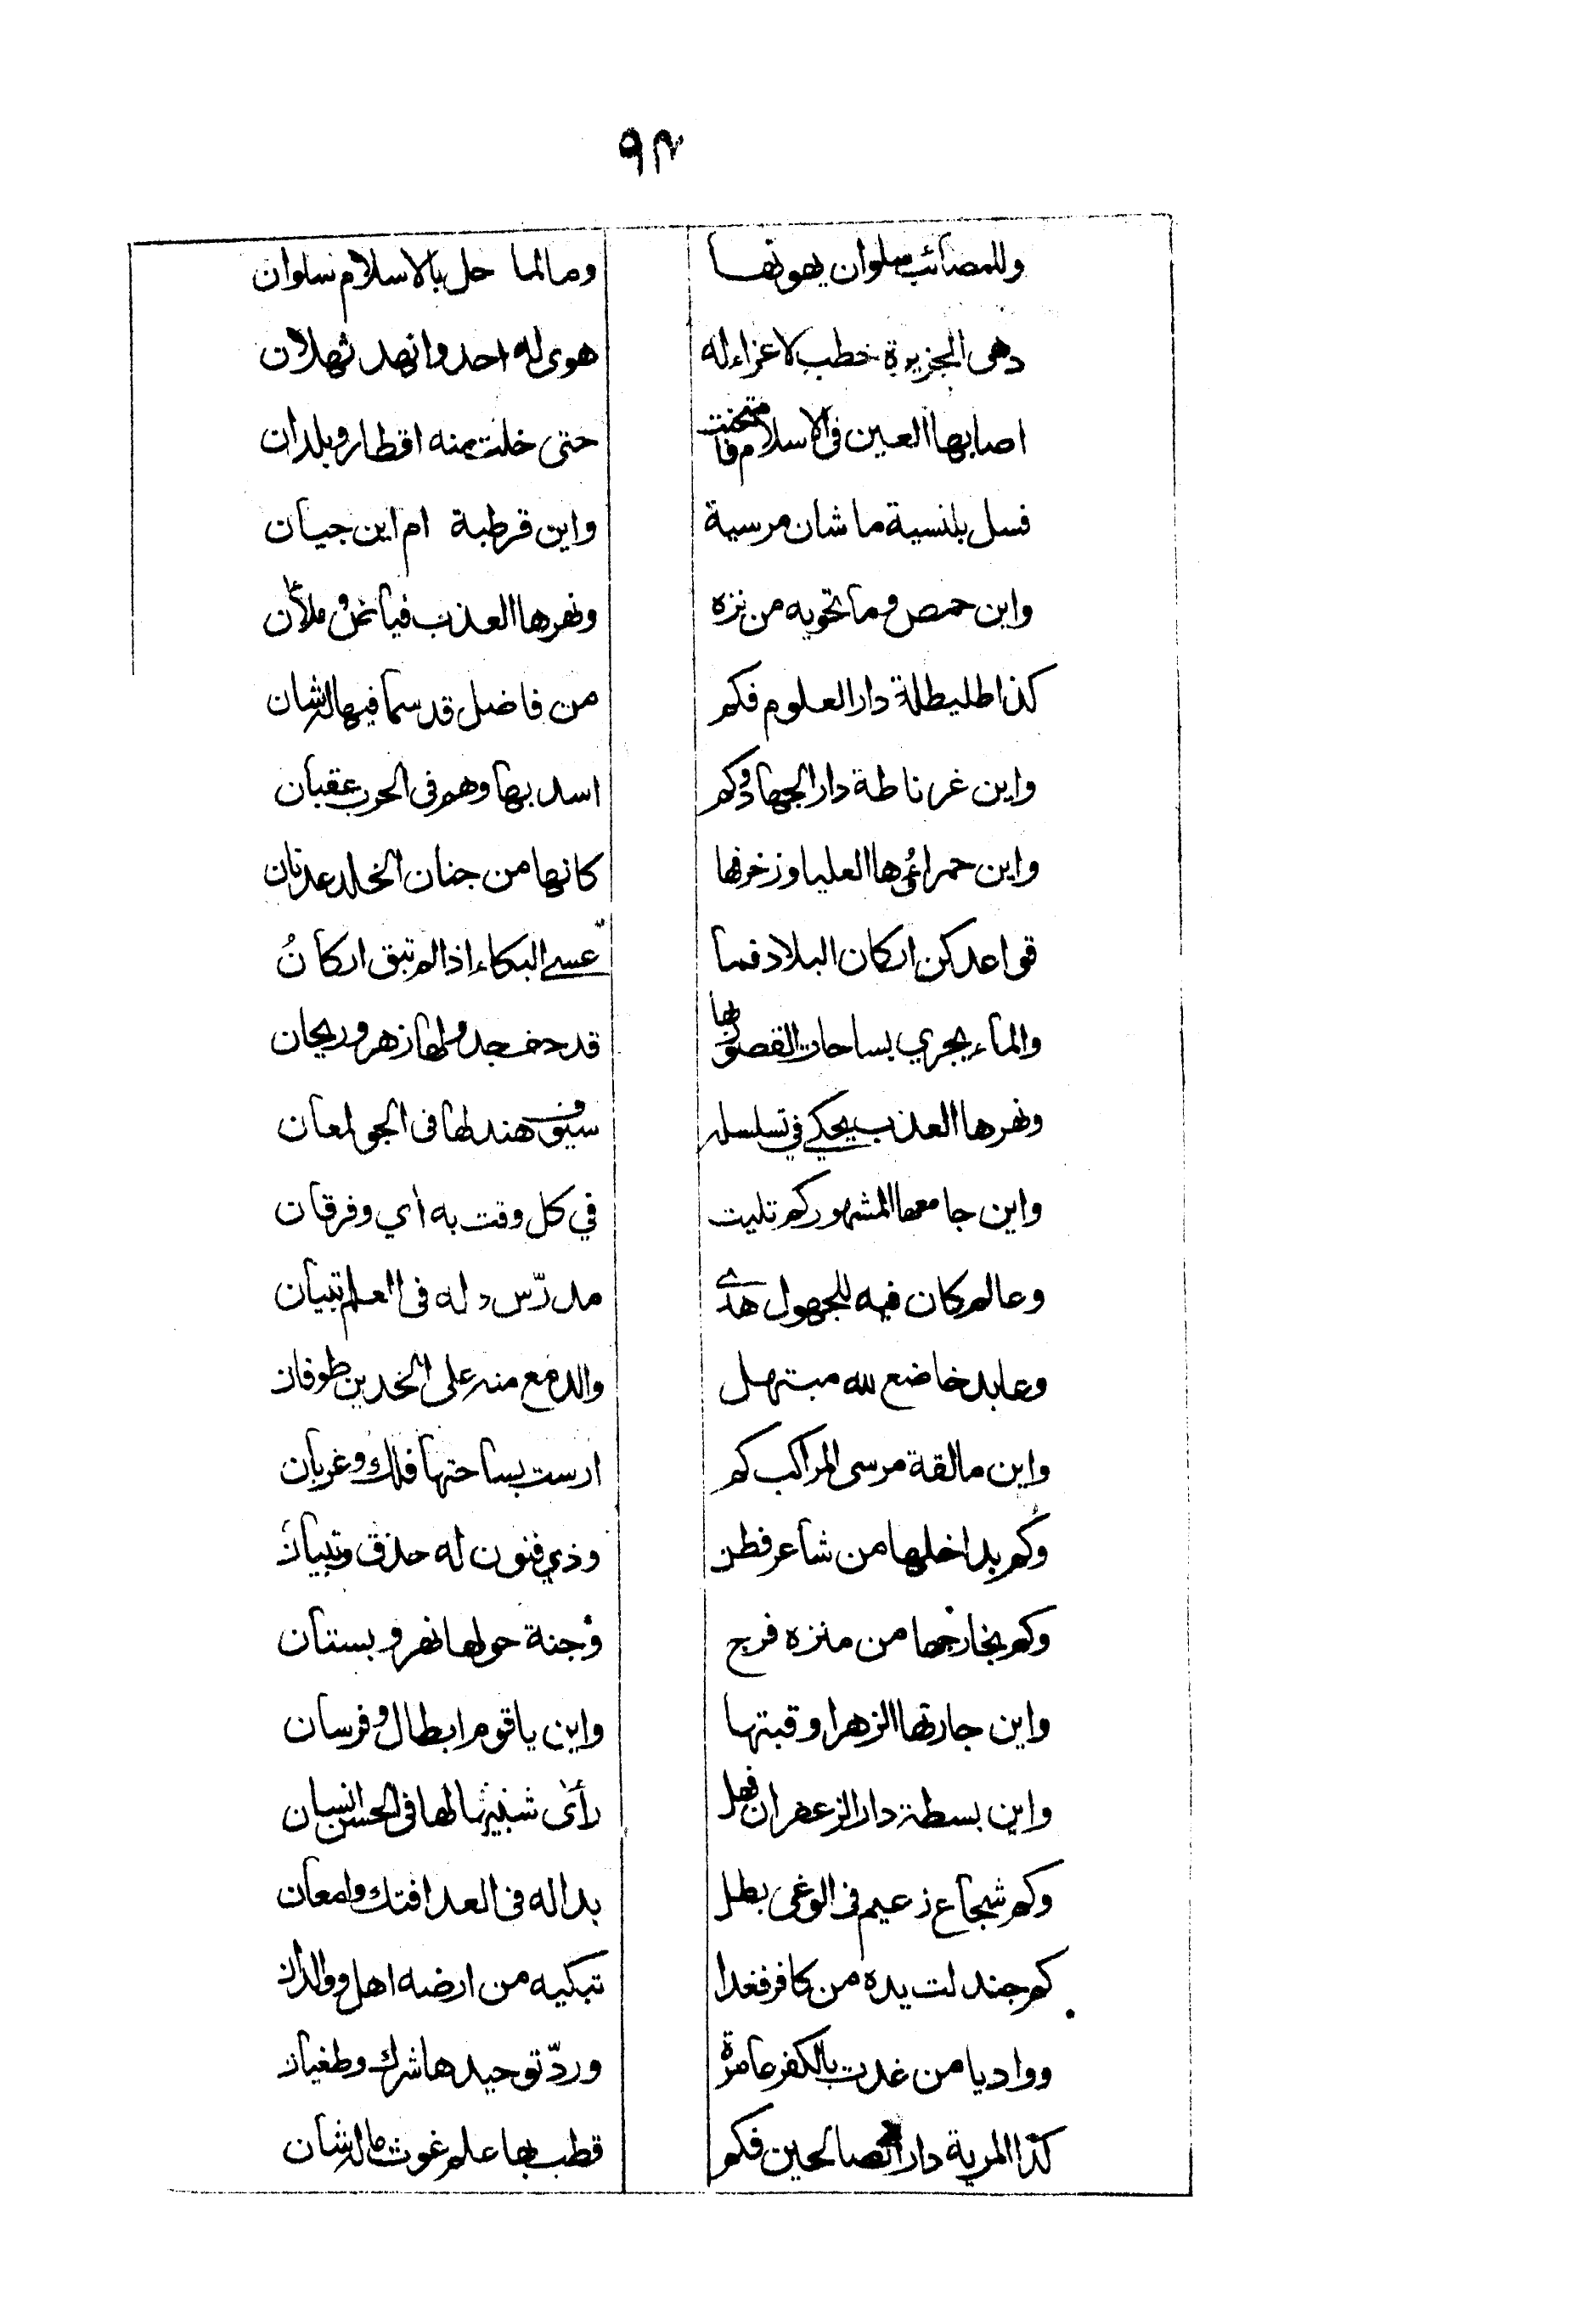 ٩٣
وللمصائب سلوان يهونها وما لما حل بالاسلام سلوان
دهى الجزيرة خطب لا عزاء له هوى له احد وانهد ثهلان
اصابها العين فى الاسلام فامتحنت حتى خلت منه اقطار وبلدان
فسل بلنسية ما شان مرسية واين قرطبة ام اين جيان
واين حمص وما تحويه من نزه ونهرها العذب فياض وملآن
كذا طليطلة دار العلوم فكم من فاضل قد سما فيها له شان
واين غرناطة دار الجهاد وكم اسد بها وهم فى الحرب عقبان
واين حمراءها العليا وزخرفها كانها من جنان الخلد عدنان
قواعد كن اركان البلاد فما عسى البكاء اذا لم تبق اركانُ
والماء يجري بساحات القصور بها قد حف جدولها زهر وريحان
ونهرها العذب يحكي في تسلسله سيوف هند لها فى الجو لمعان
واين جامعها المشهور كم تليت في كل وقت به أي وفرقان
وعالم كان فيه للجهول هدى مدرّس وله فى العلم تبيان
وعابد خاضع لله مبتهل والدمع منه على الخدين طوفان
واين مالقة مرسى المراكب كم ارست بساحتها فلك وغربان
وكم بداخلها من شاعر فطن وذي فنون له حذق وتبيان
وكم بخارجها من منزه فرج وجنة حولها نهر وبستان
واين جارتها الزهرا وقبتها واين يا قوم ابطال وفرسان
واين بسطة دار الزعفران فهل رأى شبيها لها فى الحسن انسان
وكم شجاع زعيم فى الوغى بطل بدا له فى العدا فتك وامعان
كم جندلت يده من كافر فغدا تبكيه من ارضه اهل وولدان
وواديا من غدت بالكفر عامرة وردّ توحيدها شرك وطغيان
كذا المرية دار الصالحين فكم قطب بها علم غوث له شان